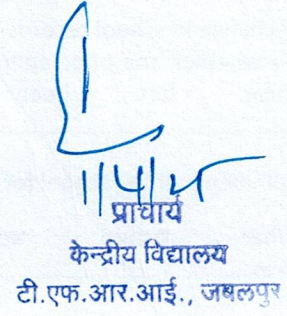 प्राचार्य
केन्द्रीय विद्यालय
टी.एफ.आर.आई., जबलपुर